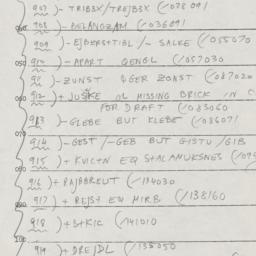 907 )- TRIBBX/TREJBBX (/028091
908 )- BELANGZAM (/036091
909 )- EJBERSTTIBL/- SALKE (/055070
910 )- APART QENGL (/057030
911 )- ZUNST 4GER ZOAST (/087020
912 )+ JUSKE OL MISSING BRICK IN
FOR DRAFT (/083060
913 )- GLEBE BUT KLEBE (/086071
914 )- GEST/-GEB BUT GISTU/GIB
915 )+ KUICTN EQ STALAMUKSNES
916 )+ PAJBBREUT (/134030
917 )+ REJST EQ MIRB (/138160
918 )+ STKIC (/141010
919 )+ DREJDL (/135050